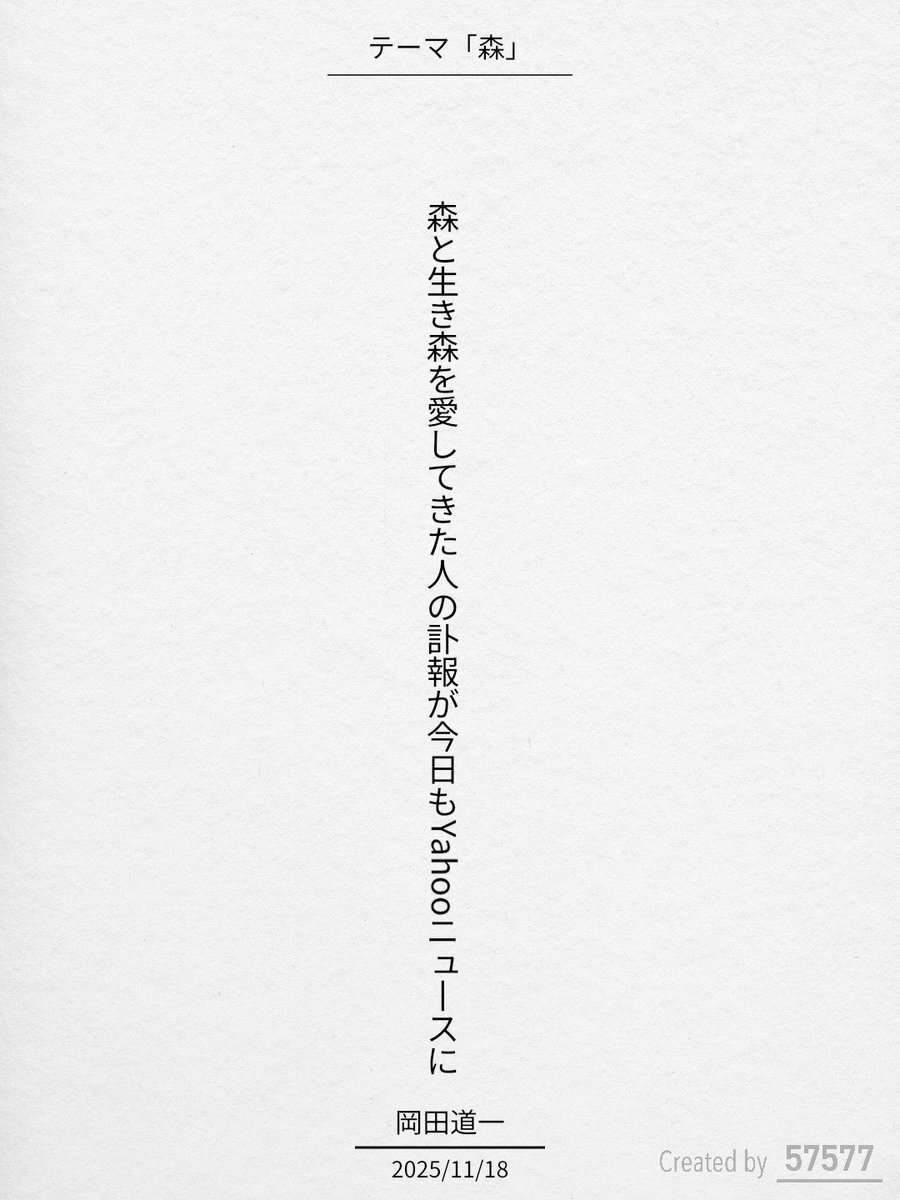 テーマ「森」
森と生き森を愛してきた人の訃報が今日もYahooニュースに
岡田道一
2025/11/18
Created by 57577